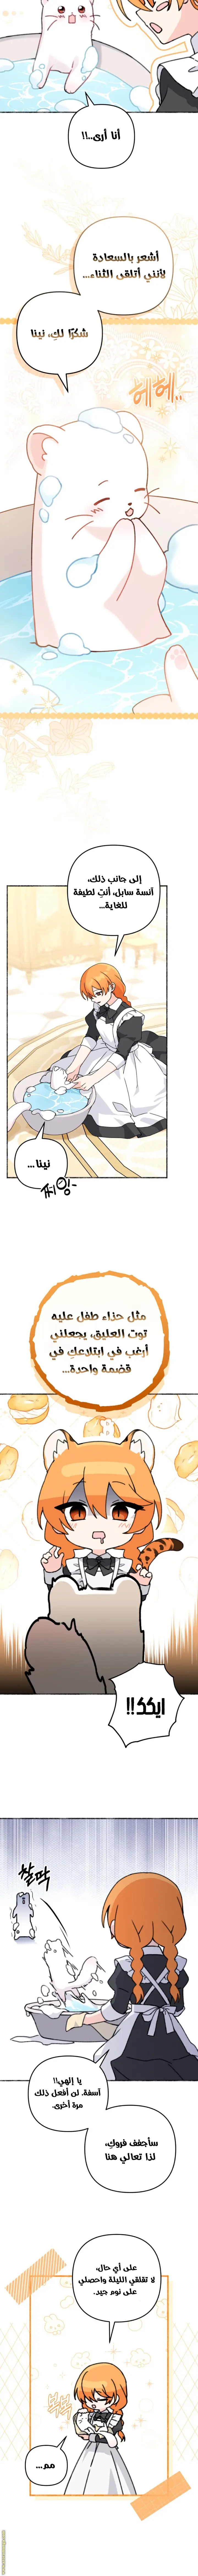 أنا أرى..!!
أشعر بالسعادة
لأنني أتلقى الثناء...
شكرًا لكِ، نينا
헤헤..
إلى جانب ذلك،
آنسة سابل، أنتِ لطيفة
للغاية...
نينا...
مثل حذاء طفل عليه
توت العليق، يجعلني
أرغب في ابتلاعكِ في
قضمة واحدة...
ايككك!!
찰딱
يا إلهي!!
آسفة. لن أفعل ذلك
مرة أخرى.
سأجفف فروكِ،
لذا تعالي هنا
على أي حال،
لا تقلقي الليلة واحصلي
على نوم جيد.
مم...